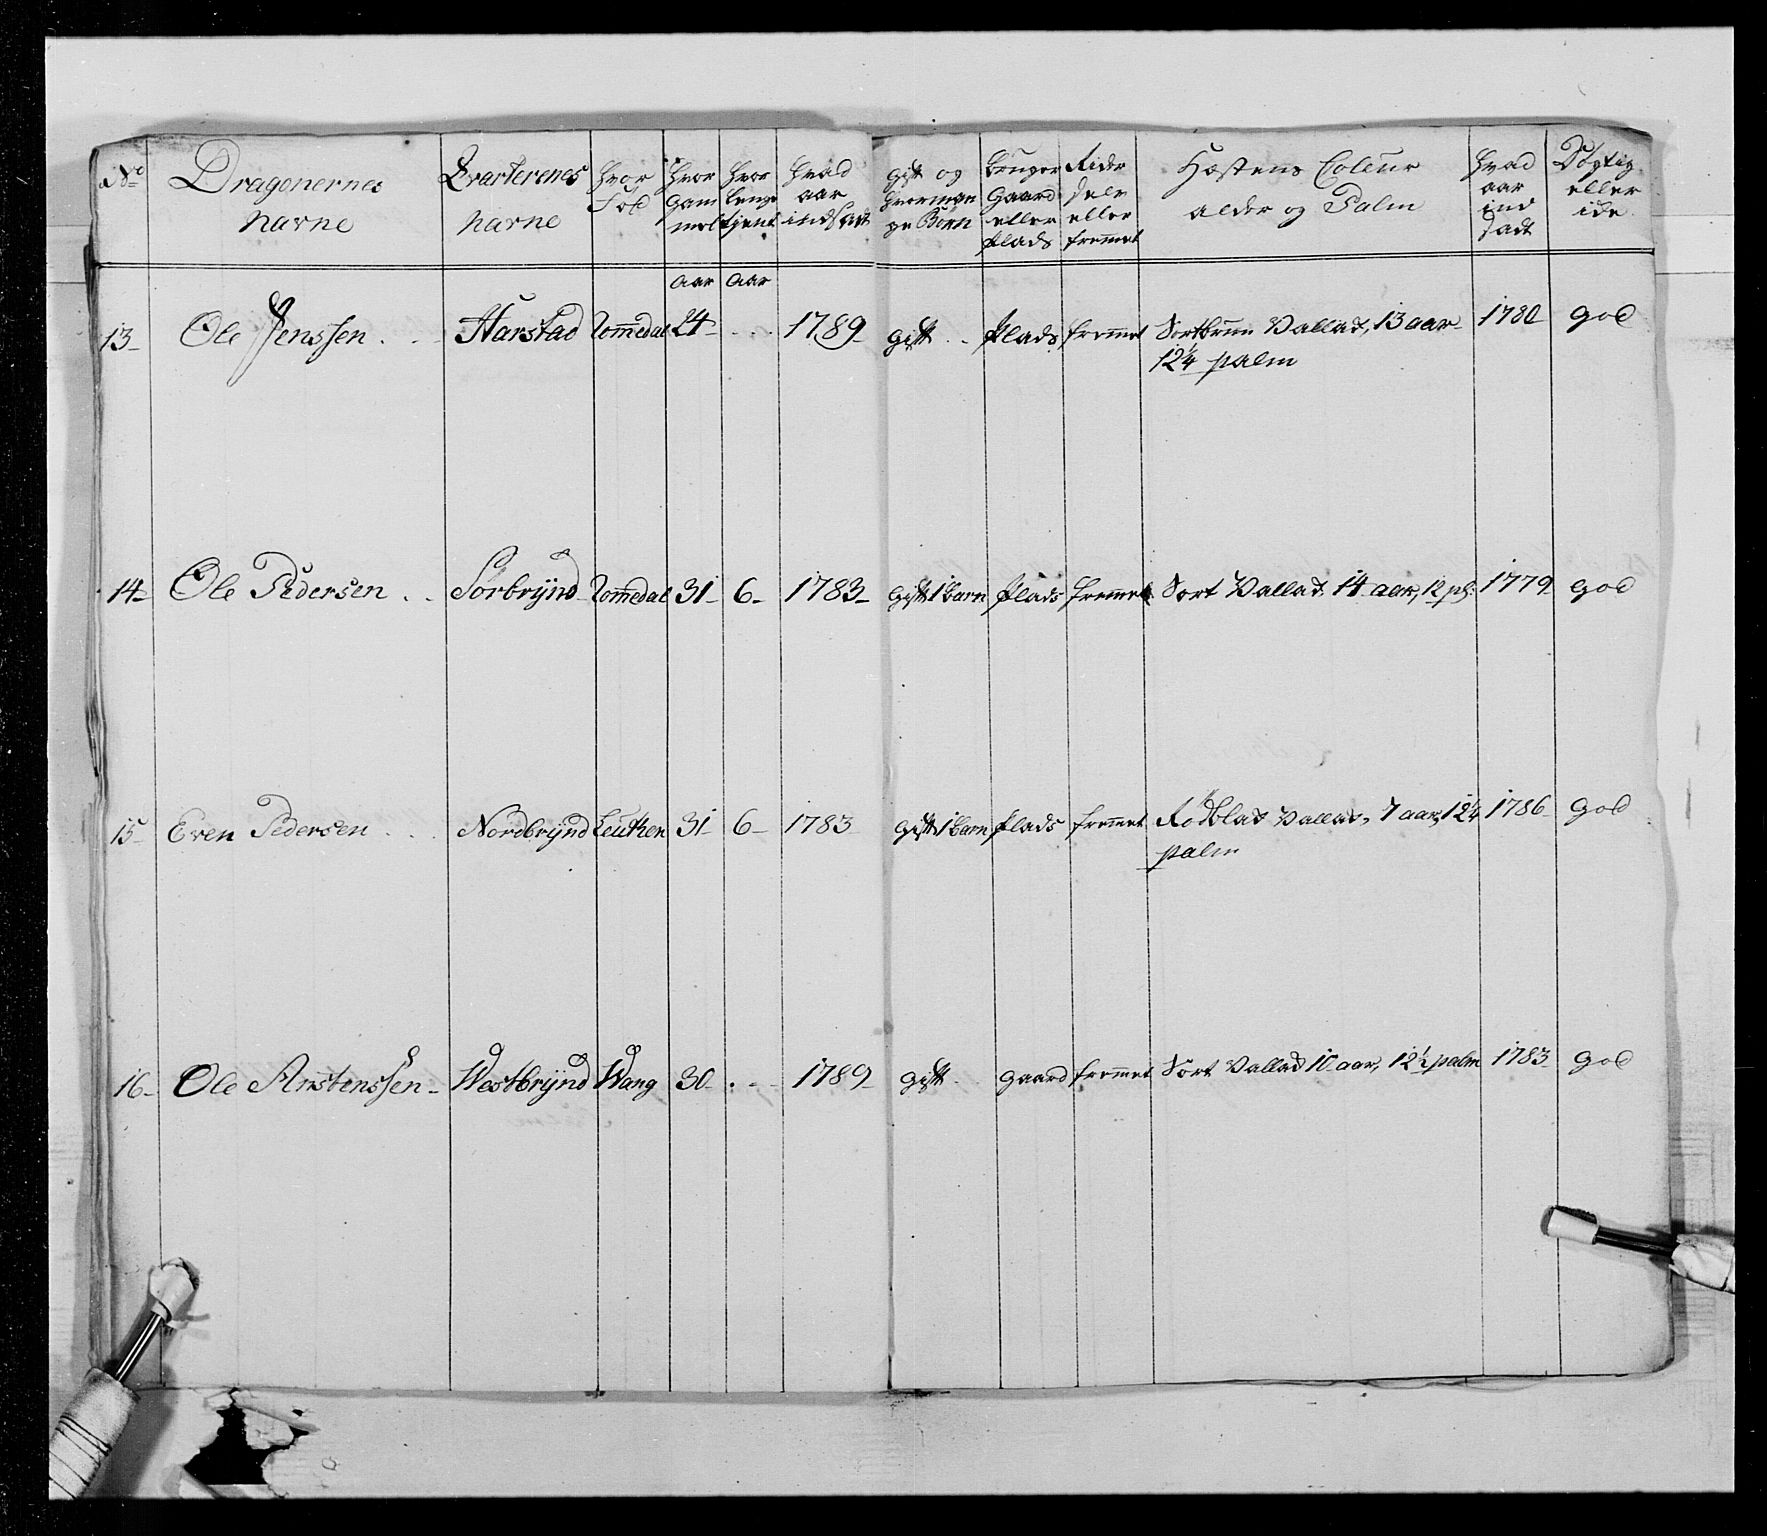 No Dragonernes Navne Qvarterenes Navne hvor fød hvor gammel hvor lenge tjent hvad aar indsadt gift og hvor mange Børn bruger Gaard eller Plads Rider selv eller fremmet Hæstens Coleur alder og Palm hvad aar indsadt Døgtig eller ide
aar aar
13 Ole Jenssen Harstad Rommedal 24 1789 gift Plads fremmet Sortbrun Vallak, 13 aar 1780 god
12¼ palm
14 Ole Pedersen Sørbrÿnd Rommedal 31 6 1783 gift 1 barn Plads fremmet Sort Vallak 14 aar, 12 pl: 1779 god
15 Even Pedersen Nordbrÿnd Leuthen 31 6 1783 gift 1 barn Plads fremmet Rødblat Vallak, 7 aar, 12¼ 1786 god
palm
16 Ole Arnstenssen Westbrÿnd Wang 30 1789 gift gaard fremmet Sort Vallak 10 aar, 12½ palm 1783 god